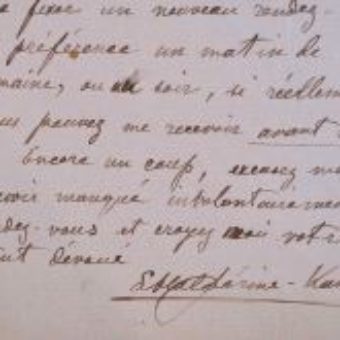 fixer un nouveau rendez-
préférence un matin de
maine, ou au soir, si réellem
us pouvez me recevoir avant
Encore un coup, excusez mo
voir manqué involontairemen
dez-vous et croyez moi votre
ut dévoué